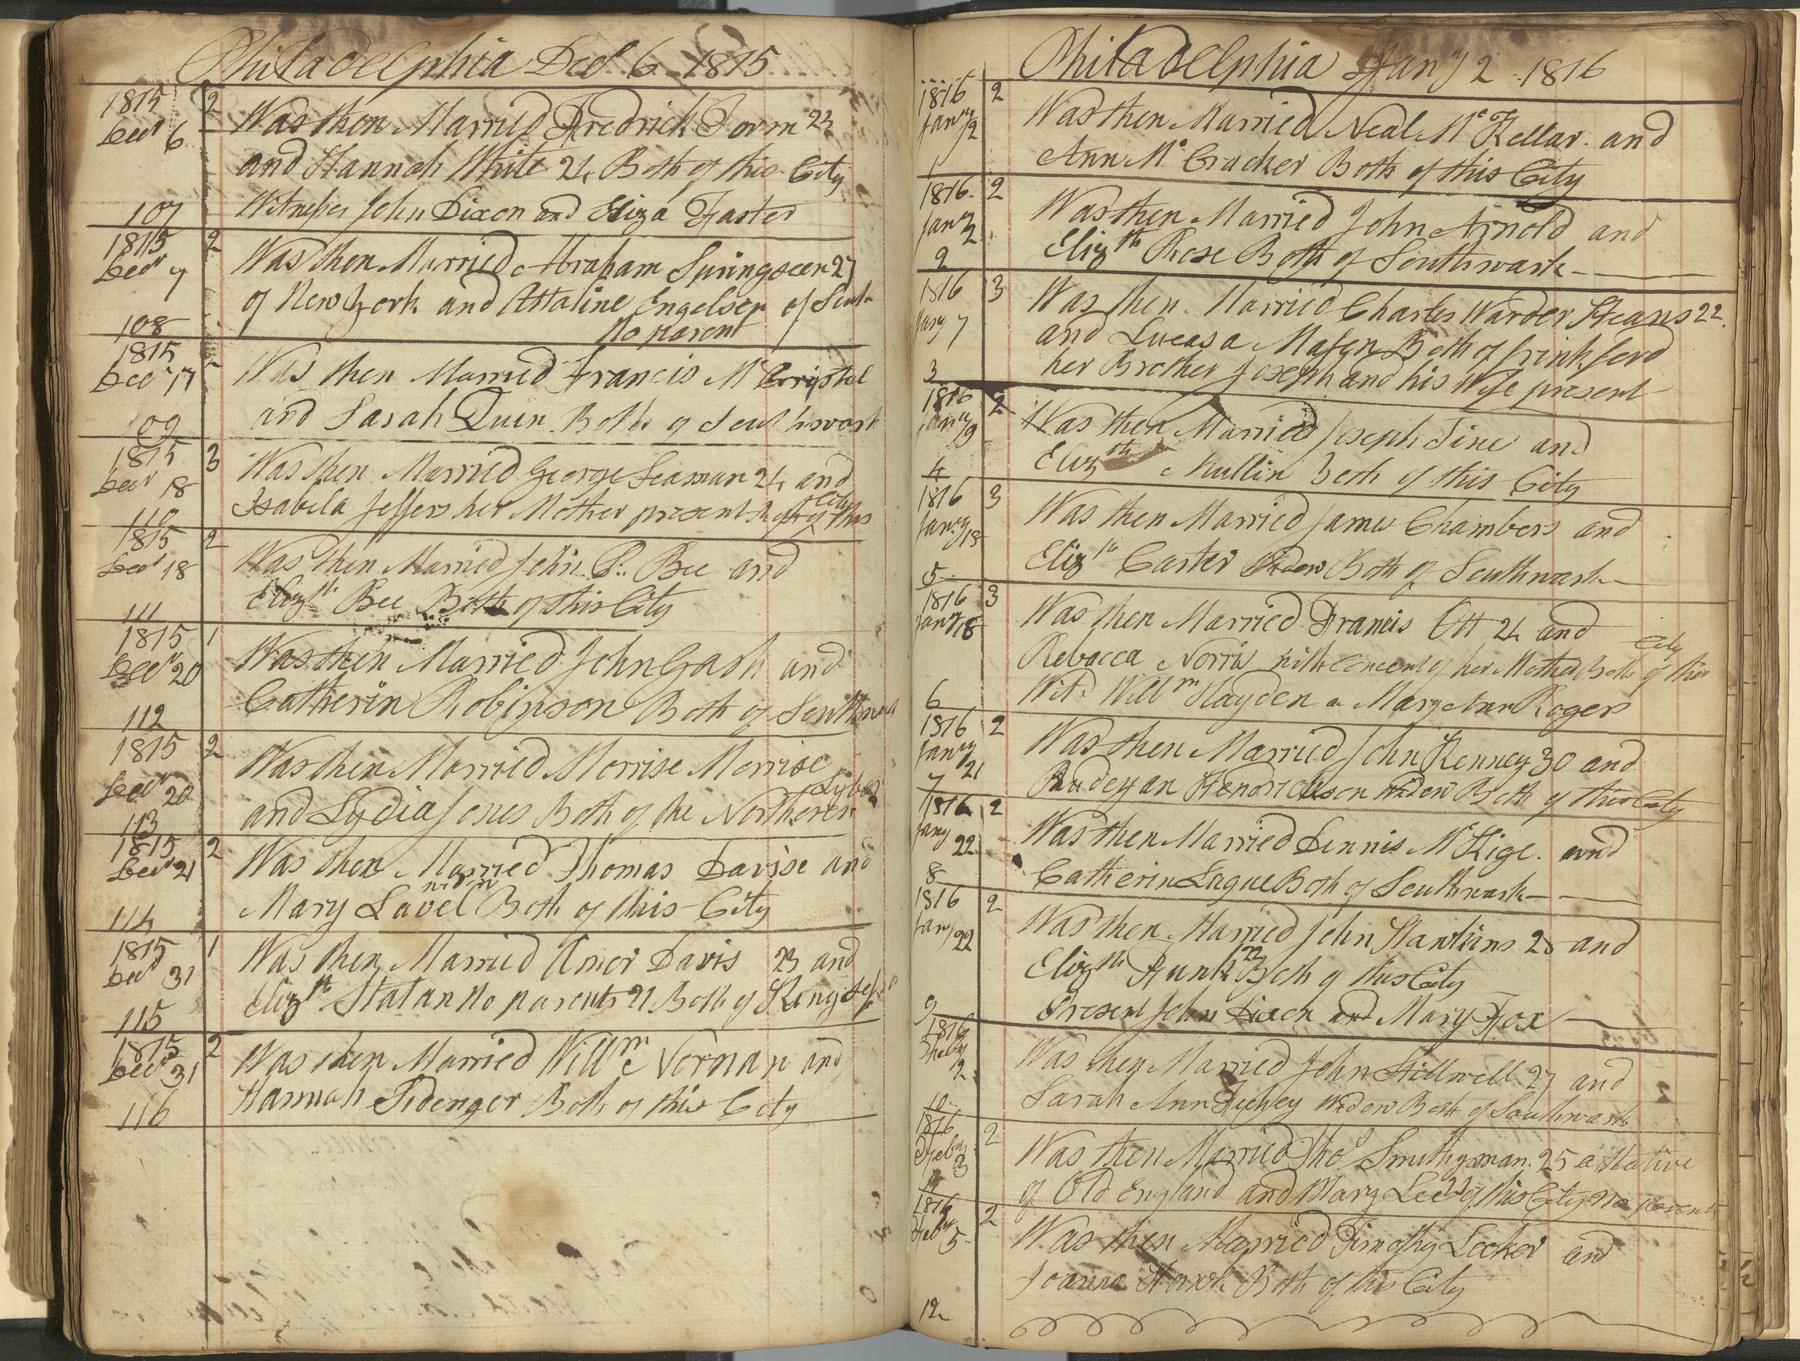 Philadelphia Decr 6 1815
1815 2 Was then Married Fredrick Form 23
Decr 6 and Hannah White 21 Both of this City
107 Witnesses John Dixon and Eliza Faster
1815 2 Was then Married Abraham Springsteen 27
Decr 7 of New York and Attaline Engelsen of South
108 No parent
1815 2 Was then Married Francis Mc
Decr 17
109 and Sarah Quin Both of Southwark
1815 3 Was then Married George Seaman 24 and
Decr 18 City
110 Isabela Jeffers her Mother present Both of this
1815 2 Was then Married John P. Bee and
Decr 18
111 Elizth Bee Both of this City
1815 1 Was then Married John Gash and
Decr 20
112 Catherin Robinson Both of Southwark
1815 2 Was then Married Morrise Morrise
Decr 20 Lybes
113 and Lydia Jones Both of the Northern
1815 2 Was then Married Thomas Davise and
Decr 21 widow
114 Mary Lavel Both of this City
1815 1 Was then Married Amor Davis 23 and
Decr 31
115 Elizth Statan No parents 21 Both of
1815 2 Was then Married Willm Vernan and
Decr 31
116 Hannah Sidenger Both of this City
Philadelphia Jany 2 1816
1816 2 Was then Married Neal Mc Kellar and
Jany 2
1 Ann Mc Cracker Both of this City
1816 2 Was then Married John Arnold and
Jany 2
2 Elizth Rose Both of Southwark
1816 3 Was then Married Charles Warder Steans 22
Jany 7 and Lucasa Mason Both of frinkford
3 her Brother Joseph and his Wife present
1816 2 Was then Married Joseph Tine and
Jany 9
4 Elizth Mullin Both of this City
1816 3 Was then Married James Chambers and
Jany 13
5 Elizth Carter Widow Both of Southwark
1816 3 Was then Married Francis Ott 24 and
Jany 18 City
Rebacca Norris with Concent of her Mother Both of this
6 Witd Willm Hayden & Mary Ann Rogers
1816 2 Was then Married John Kenney 30 and
Jany 21
7 Hendrickson Widow Both of this City
1816 2 Was then Married Dennis Mc Kige and
Jany 22
8 Catherin Lague Both of Southwark
1816 2 Was then Married John Hankins 25 and
Jany 22 22
Elizth Runk Both of this City
9 Present John Dixon and Mary Fox
1816 Was then Married John Stillwell 27 and
Feby 2
10 Sarah Ann Widow Both of Southwark
1816 2 Was then Married Thos Smithyman 25 a Native
Feby 3
of Old England and Mary Lee 22 of this City No Parents
1816 2 Was then Married Timothy Locker and
Feby 5
Joanna Both of this City
12